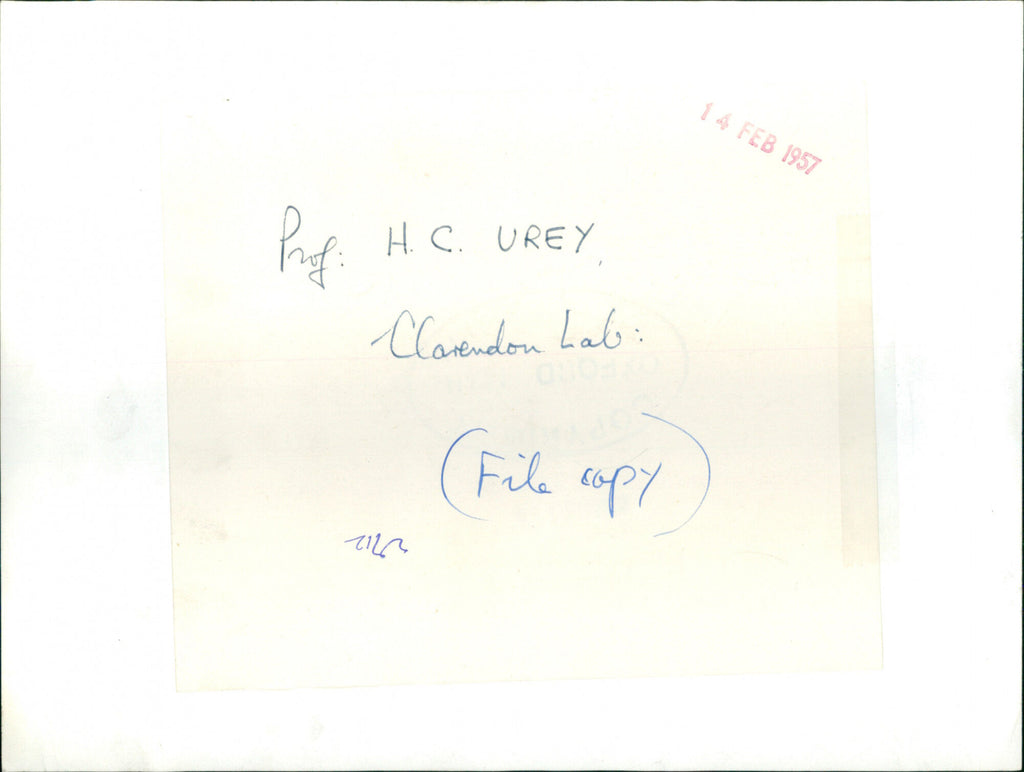 14 FEB 1957
Prof: H. C. UREY,
Clarendon Lab:
(File copy)